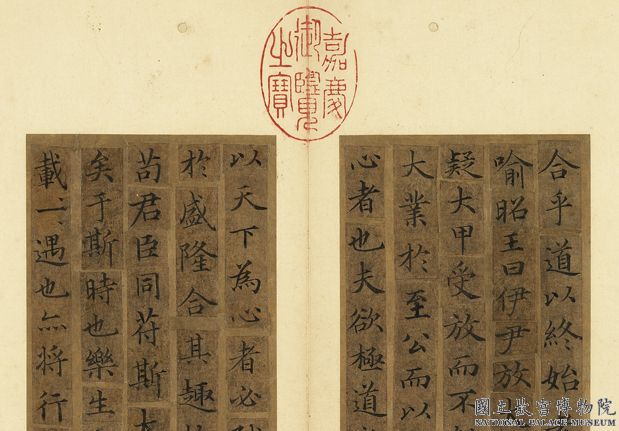 嘉慶御覽之寶
合乎道以終始
喻昭王曰伊尹放
疑大甲受放而不
大業於至公而以
心者也夫欲極道
以天下為心者必
於盛隆合其趣
苟君臣同苻斯
矣于斯時也樂生
載一遇也亦将行
國立故宮博物院
NATIONAL PALACE MUSEUM